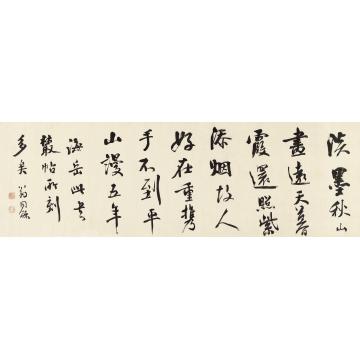 淡墨秋山
畫遠天暮
霞還照紫
添烟故人
好在重携
手不到平
山謾五年
海岳此
叢帖所刻
多矣 翁同龢